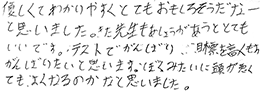 優しくてわかりやすくとてもおもしろそうだなー
と思いました。また先生もよしょうがあうととても
いいです。テストでがんばり、目標を高くもち
がんばりたいと思います。ぼくみたいに頭が悪く
ても、よくなるのかなと思いました。